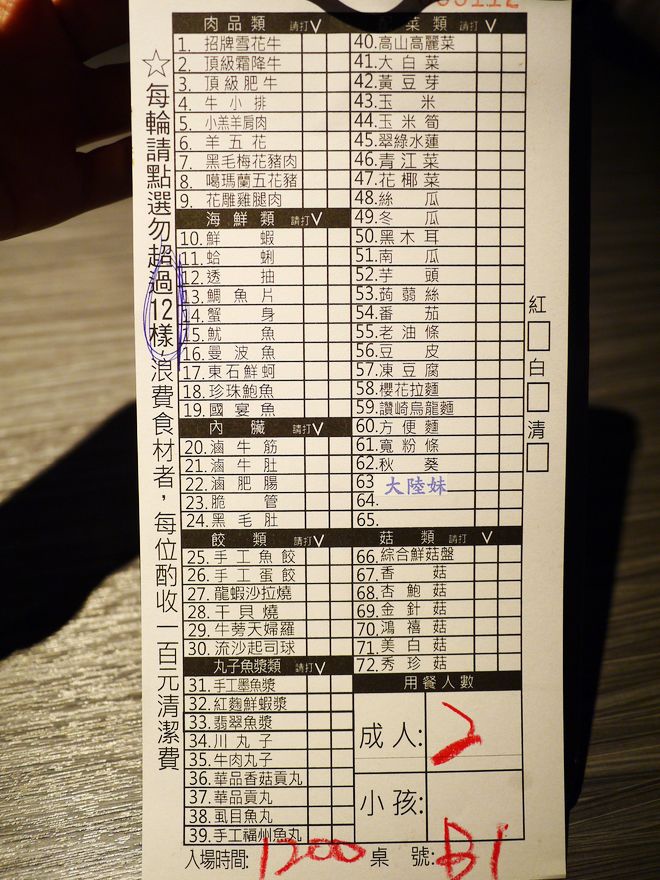 ☆每輪請點選勿超過12樣,浪費食材者,每位酌收一百元清潔費
肉品類 請打V
1. 招牌雪花牛
2. 頂級霜降牛
3. 頂級肥牛
4. 牛小排
5. 小羔羊肩肉
6. 羊五花
7. 黑毛梅花豬肉
8. 噶瑪蘭五花豬
9. 花雕雞腿肉
海鮮類 請打V
10. 鮮蝦
11. 蛤蜊
12. 透抽
13. 鯛魚片
14. 蟹身
15. 魷魚
16. 曼波魚
17. 東石鮮蚵
18. 珍珠鮑魚
19. 國宴魚
內臟 請打V
20. 滷牛筋
21. 滷牛肚
22. 滷肥腸
23. 脆管
24. 黑毛肚
餃類 請打V
25. 手工魚餃
26. 手工蛋餃
27. 龍蝦沙拉燒
28. 干貝燒
29. 牛蒡天婦羅
30. 流沙起司球
丸子魚漿類 請打V
31. 手工墨魚漿
32. 紅麴鮮蝦漿
33. 翡翠魚漿
34. 川丸子
35. 牛肉丸子
36. 華品香菇貢丸
37. 華品貢丸
38. 虱目魚丸
39. 手工福州魚丸
菜類 請打V
40. 高山高麗菜
41. 大白菜
42. 黃豆芽
43. 玉米
44. 玉米筍
45. 翠綠水蓮
46. 青江菜
47. 花椰菜
48. 絲瓜
49. 冬瓜
50. 黑木耳
51. 南瓜
52. 芋頭
53. 蒟蒻絲
54. 番茄
55. 老油條
56. 豆皮
57. 凍豆腐
58. 櫻花拉麵
59. 讚崎烏龍麵
60. 方便麵
61. 寬粉條
62. 秋葵
63 大陸妹
64.
65.
菇類 請打V
66. 綜合鮮菇盤
67. 香菇
68. 杏鮑菇
69. 金針菇
70. 鴻禧菇
71. 美白菇
72. 秀珍菇
用餐人數
成人: 2
小孩:
紅
白
清
入場時間: 1200 桌號: B1